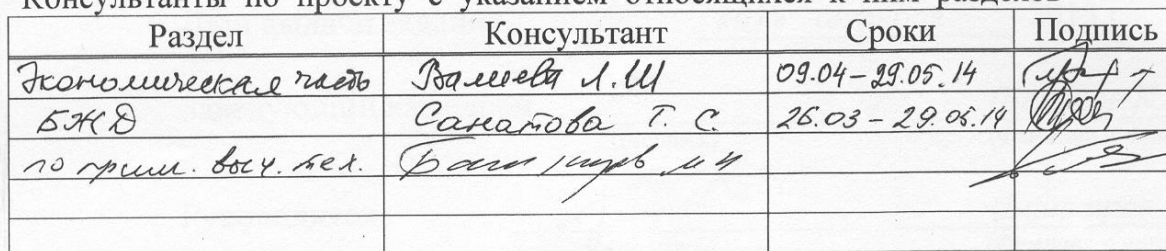 Консультанты по проекту с указанием относящихся к ним разделов
Раздел Консультант Сроки Подпись
Экономическая часть Валеева Л.Ш 09.04-29.05.14
БЖД Санатова Т. С. 26.03-29.05.14
по прим. выч. тех.